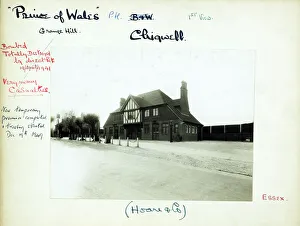 "Prince of Wales" P.H. B&W.
Grange Hill.
Chigwell
Bombed
Totally Destroyed
by direct hit
1941
Very many
Casualties.
New temporary
premises completed
Trading started
Dec
(Hoare & Co)
ESSEX.